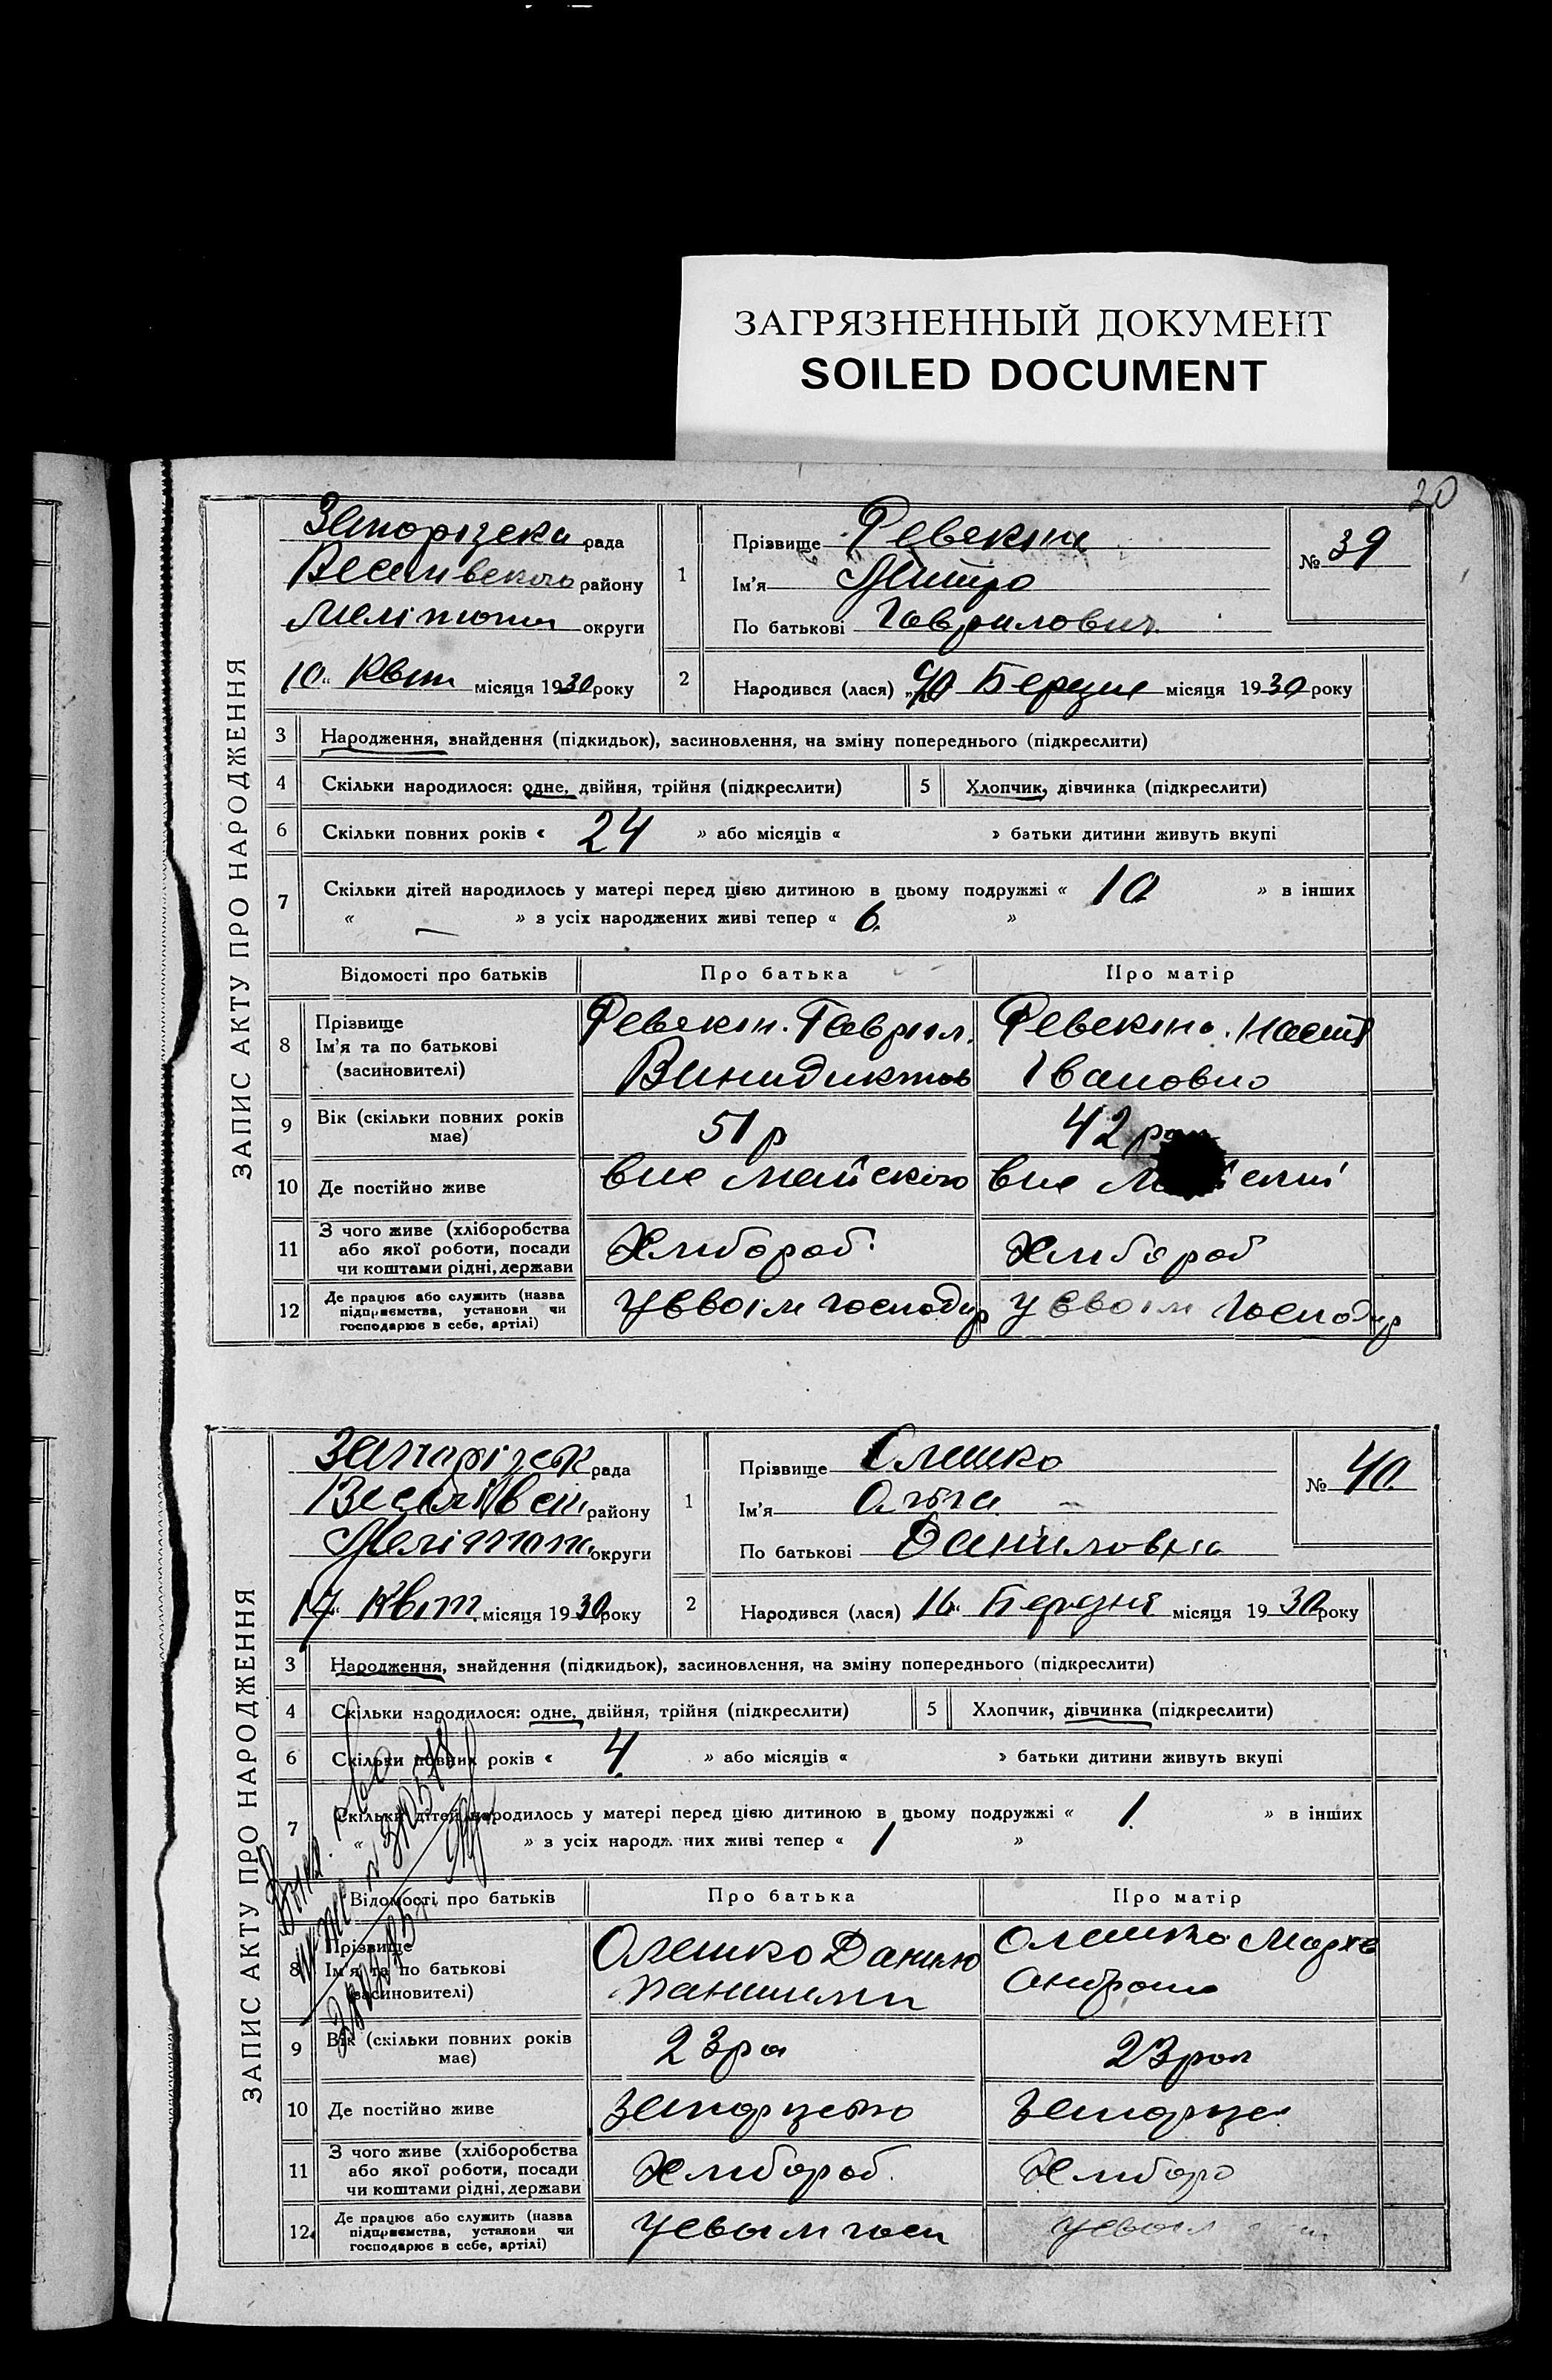 ЗАГРЯЗНЕННЫЙ ДОКУМЕНТ
SOILED DOCUMENT
20
ЗАПИС АКТУ ПРО НАРОДЖЕННЯ
Запорізска рада
Веселивского району
Мелітопол округи
10 " Квіт місяця 1930 року
1
Прізвище Ревекин
Ім'я Дмитро
По батькові Гаврилович
№ 39
2
Народився (лася) Березня місяця 1930 року
3 Народження, знайдення (підкидьок), засиновлення, на зміну попереднього (підкреслити)
4 Скільки народилося: одне, двійня, трійня (підкреслити)
5 Хлопчик, дівчинка (підкреслити)
6 Скільки повних років « 24 » або місяців « » батьки дитини живуть вкупі
7 Скільки дітей народилось у матері перед цією дитиною в цьому подружжі « 10 » в інших
« — » з усіх народжених живі тепер « 6 »
Відомості про батьків Про батька Про матір
8 Прізвище
Ім'я та по батькові
(засиновителі)
Ревекин. Гаврил.
Винидиктов
Ревекина. Наст
Івановно
9 Вік (скільки повних років
має)
51 р
42 ро
10 Де постійно живе
вис Майского
вис
11 З чого живе (хліборобства
або якої роботи, посади
чи коштами рідні, держави
Хлибороб
Хлибороб
12 Де працює або служить (назва
підприємства, установи чи
господарює в себе, артілі)
У ввоім господар
У ввоім господар
ЗАПИС АКТУ ПРО НАРОДЖЕННЯ
Запорізск рада
Веселивск району
Мелітопол округи
17 " Квіт місяця 1930 року
1
Прізвище Олешко
Ім'я Ольга
По батькові Даниловна
№ 40
2
Народився (лася) 16 " Березня місяця 1930 року
3 Народження, знайдення (підкидьок), засиновлення, на зміну попереднього (підкреслити)
4 Скільки народилося: одне, двійня, трійня (підкреслити)
5 Хлопчик, дівчинка (підкреслити)
6 Скільки повних років « 4 » або місяців « » батьки дитини живуть вкупі
7 Скільки дітей народилось у матері перед цією дитиною в цьому подружжі « 1 » в інших
« » з усіх народж них живі тепер « 1 »
Відомості про батьків Про батька Про матір
8 Прізвище
Ім'я та по батькові
(засиновителі)
Олешко Данило
Олешко
9 Вік (скільки повних років
має)
23 ро
23 рол
10 Де постійно живе
Запорізько
Запоріз
11 З чого живе (хліборобства
або якої роботи, посади
чи коштами рідні, держави
Хлибороб.
Хлиборо
12 Де працює або служить (назва
підприємства, установи чи
господарює в себе, артілі)
У своім госп
У своім